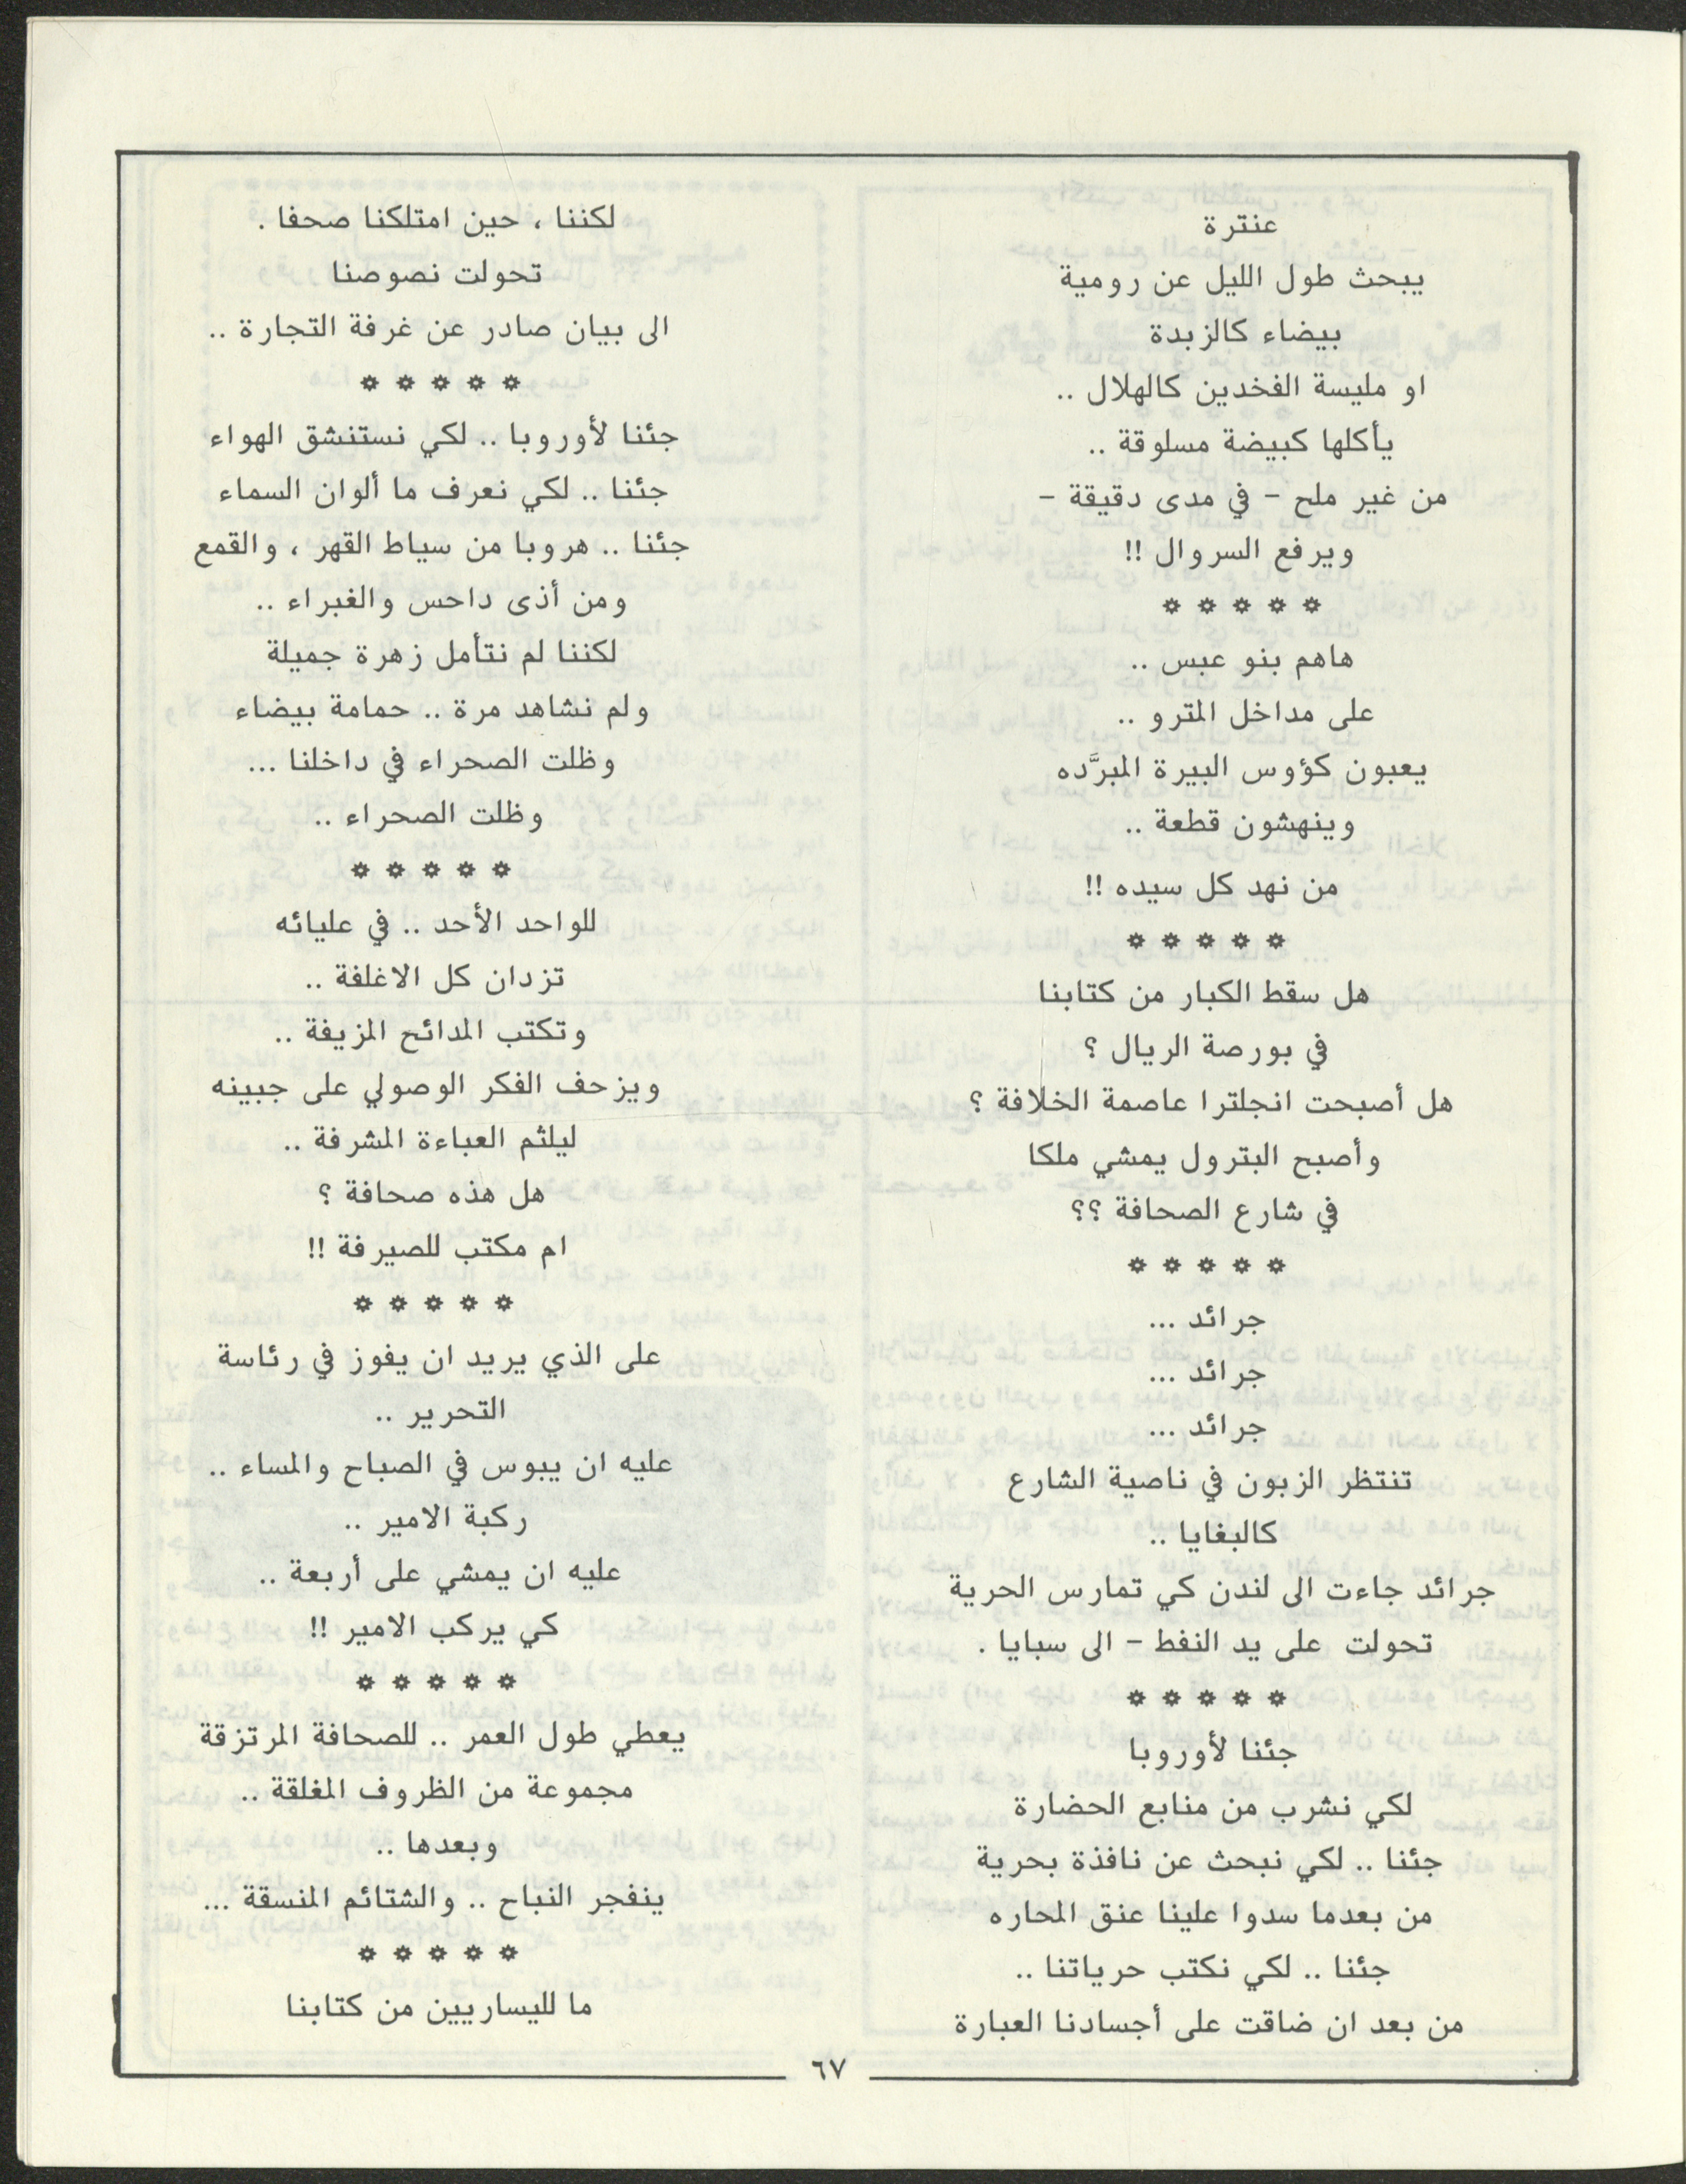 عنترة
يبحث طول الليل عن رومية
بيضاء كالزبدة
او مليسة الفخدين كالهلال ..
يأكلها كبيضة مسلوقة ..
من غير ملح - في مدى دقيقة -
ويرفع السروال !!
* * * * *
هاهم بنو عبس ..
على مداخل المترو ..
يعبون كؤوس البيرة المبرَّده
وينهشون قطعة ..
من نهد كل سيده !!
* * * * *
هل سقط الكبار من كتابنا
في بورصة الريال ؟
هل أصبحت انجلترا عاصمة الخلافة ؟
وأصبح البترول يمشي ملكا
في شارع الصحافة ؟؟
* * * * *
جرائد ...
جرائد ...
جرائد ...
تنتظر الزبون في ناصية الشارع
كالبغايا ..
جرائد جاءت الى لندن كي تمارس الحرية
تحولت على يد النفط - الى سبايا .
* * * * *
جئنا لأوروبا
لكي نشرب من منابع الحضارة
جئنا .. لكي نبحث عن نافذة بحرية
من بعدما سدوا علينا عنق المحاره
جئنا .. لكي نكتب حرياتنا ..
من بعد ان ضاقت على أجسادنا العبارة
لكننا ، حين امتلكنا صحفا .
تحولت نصوصنا
الى بيان صادر عن غرفة التجارة ..
* * * * *
جئنا لأوروبا .. لكي نستنشق الهواء
جئنا .. لكي نعرف ما ألوان السماء
جئنا .. هروبا من سياط القهر ، والقمع
ومن أذى داحس والغبراء ..
لكننا لم نتأمل زهرة جميلة
ولم نشاهد مرة .. حمامة بيضاء
وظلت الصحراء في داخلنا ...
وظلت الصحراء ..
* * * * *
للواحد الأحد .. في عليائه
تزدان كل الاغلفة ..
وتكتب المدائح المزيفة ..
ويزحف الفكر الوصولي على جبينه
ليلثم العباءة المشرفة ..
هل هذه صحافة ؟
ام مكتب للصيرفة !!
* * * * *
على الذي يريد ان يفوز في رئاسة
التحرير ..
عليه ان يبوس في الصباح والمساء ..
ركبة الامير ..
عليه ان يمشي على أربعة ..
كي يركب الامير !!
* * * * *
يعطي طول العمر .. للصحافة المرتزقة
مجموعة من الظروف المغلقة ..
وبعدها ..
ينفجر النباح .. والشتائم المنسقة ...
* * * * *
ما لليساريين من كتابنا
٦٧